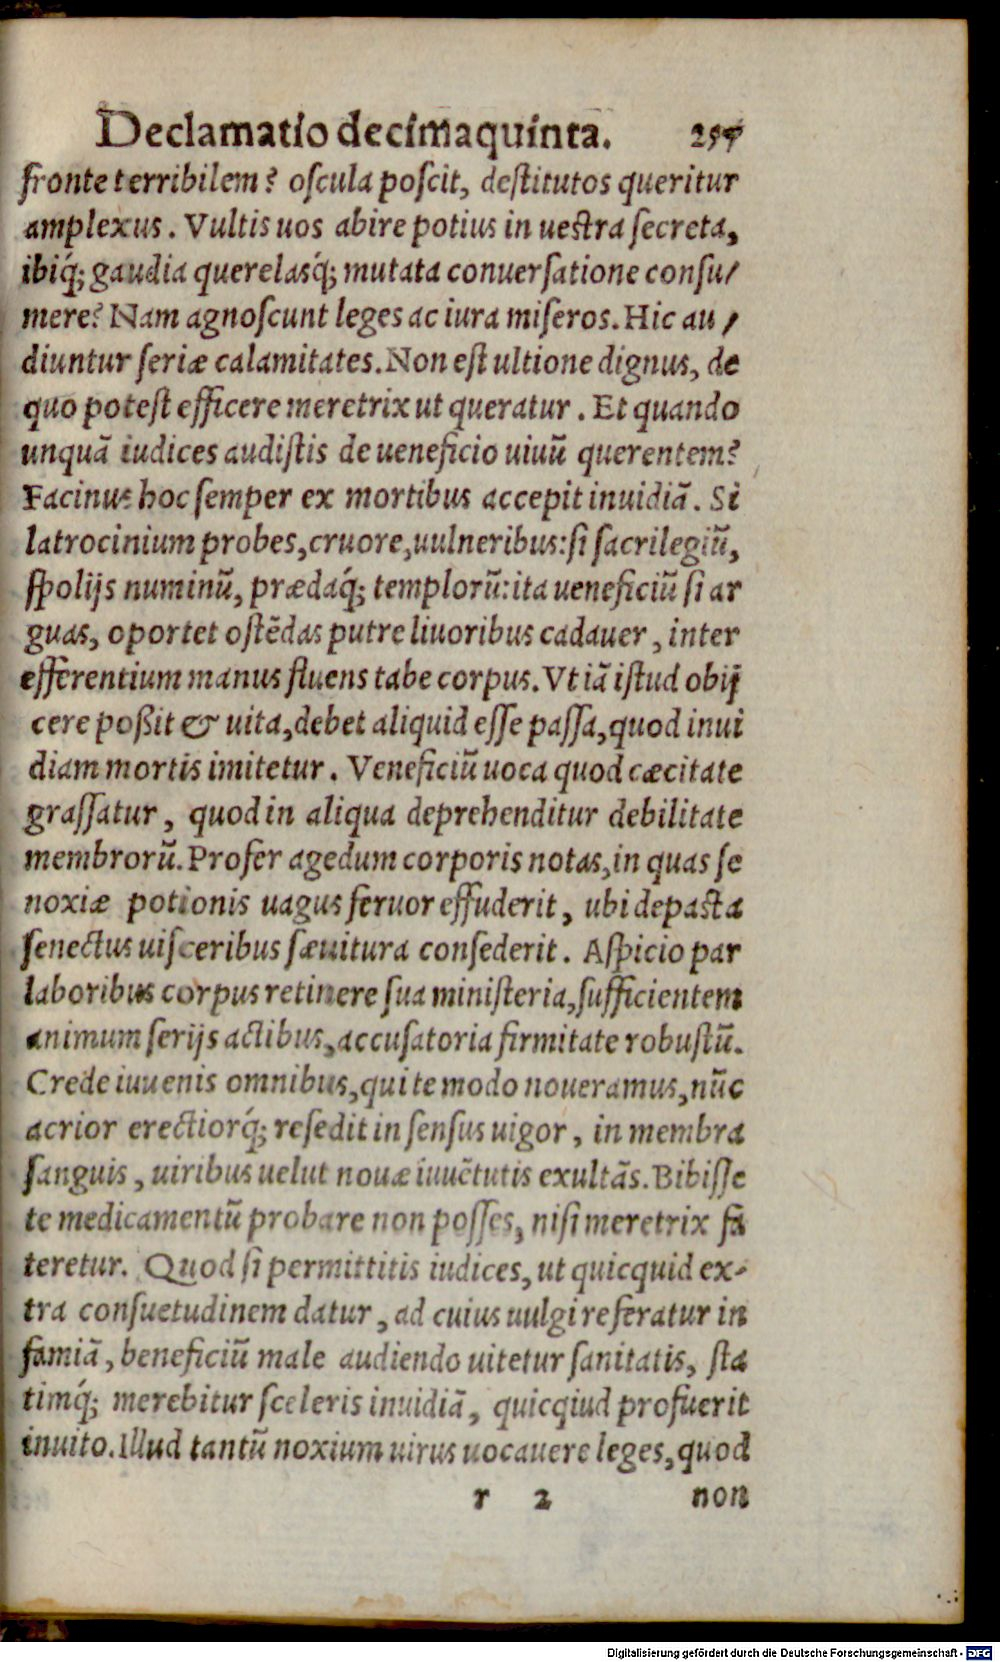 Declamatio decimaquinta. 257
fronte terribilem? oſcula poſcit, deſtitutos queritur
amplexus. Vultis uos abire potius in ueſtra ſecreta,
ibiq́; gaudia querelasq́; mutata conuerſatione conſu/
mere? Nam agnoſcunt leges ac iura miſeros. Hic au/
diuntur ſeriæ calamitates. Non eſt ultione dignus, de
quo poteſt efficere meretrix ut queratur. Et quando
unquã iudices audiſtis de ueneficio uiuũ querentem?
Facinus hoc ſemper ex mortibus accepit inuidiã. Si
latrocinium probes, cruore, uulneribus: ſi ſacrilegiũ,
ſpolijs numinũ, prædaq́; templorũ: ita ueneficiũ ſi ar
guas, oportet oſtẽdas putre liuoribus cadauer, inter
efferentium manus fluens tabe corpus. Vt iã iſtud obij
cere poßit & uita, debet aliquid eſſe paſſa, quod inui
diam mortis imitetur. Veneficiũ uoca quod cæcitate
graſſatur, quod in aliqua deprehenditur debilitate
membrorũ. Profer agedum corporis notas, in quas ſe
noxiæ potionis uagus feruor effuderit, ubi depaſta
ſenectus uiſceribus ſæuitura conſederit. Aſpicio par
laboribus corpus retinere ſua miniſteria, ſufficientem
animum ſerijs actibus, accuſatoria firmitate robuſtũ.
Crede iuuenis omnibus, qui te modo noueramus, nũc
acrior erectiorq́; reſedit in ſenſus uigor, in membra
ſanguis, uiribus uelut nouæ iuuẽtutis exultãs. Bibiſſe
te medicamentũ probare non poſſes, niſi meretrix fa
teretur. Quod ſi permittitis iudices, ut quicquid ex-
tra conſuetudinem datur, ad cuius uulgi referatur in
famiã, beneficiũ male audiendo uitetur ſanitatis, ſta
timq́; merebitur ſceleris inuidiã, quicqiud profuerit
inuito. Illud tantũ noxium uirus uocauere leges, quod
r 2 non
Digitalisierung gefördert durch die Deutsche Forschungsgemeinschaft - DFG